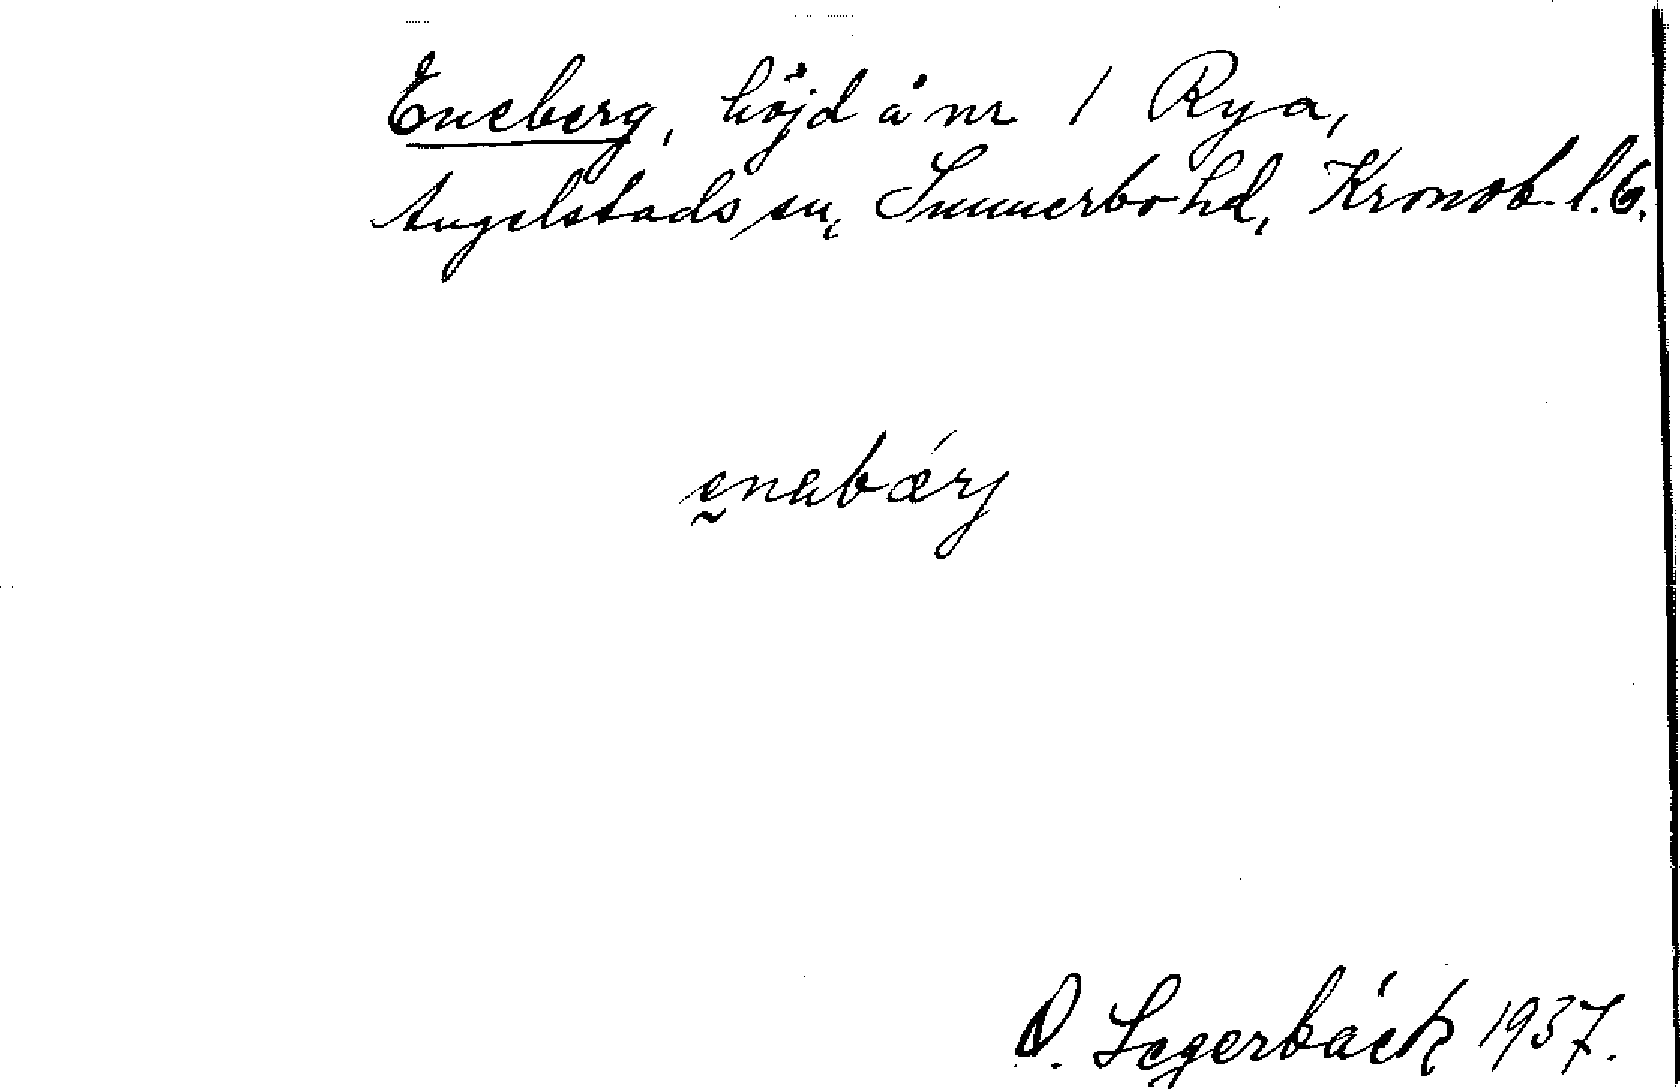 Eneberg, höjd å nr 1 Rya,
Angelstads sn, Sunnerbo hd, Kronob. l. G.
enabærj
O. Segerbäck 1937.